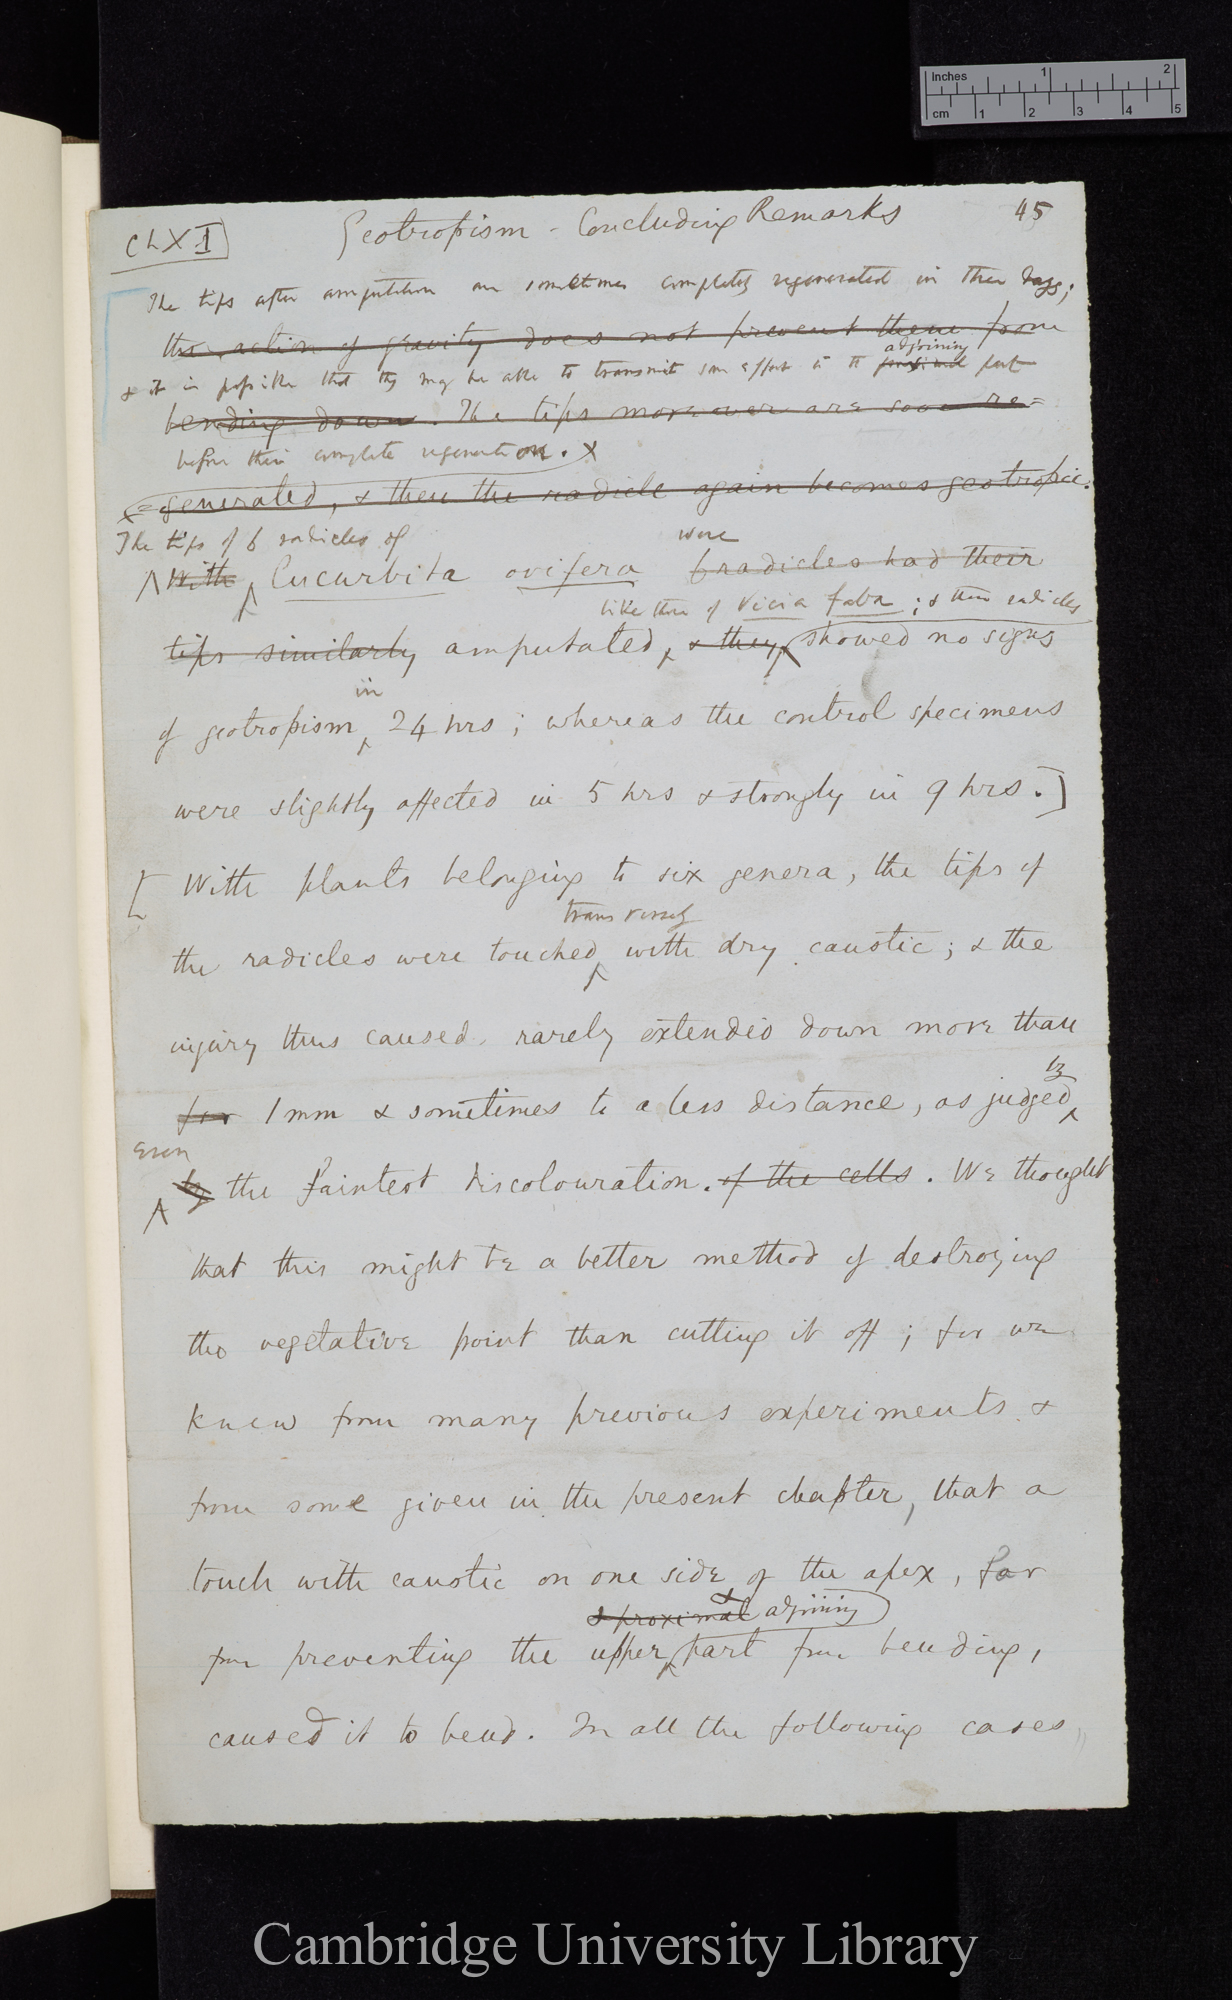 Inches 1 2
cm 1 2 3 4 5
CLXI Geotropism - Concluding Remarks 45
The tips after amputation are sometimes completely regenerated in three days;
the action of gravity does not prevent them from
adjoining
& it is possible that they may be able to transmit some effect to the proximal part
bending down. The tips moreover are soon re=
before their complete regeneration. X
=generated, & then the radicle again becomes geotropic.
The tips of 6 radicles of were
With Cucurbita ovifera 6 radicles had their
like those of Vicia faba; & their radicles
tips similarly amputated, & they showed no signs
in
of geotropism 24 hrs; whereas the control specimens
were slightly affected in 5 hrs & strongly in 9 hrs.]
[ With plants belonging to six genera, the tips of
transversely
the radicles were touched with dry caustic; & the
injury thus caused rarely extended down more than
by
for 1mm & sometimes to a less distance, as judged
even
by the faintest discolouration. of the cells. We thought
that this might be a better method of destroying
the vegetative point than cutting it off; for we
knew from many previous experiments &
from some given in the present chapter, that a
touch with caustic on one side of the apex, far
& proximal adjoining
from preventing the upper part from bending,
caused it to bend. In all the following cases
Cambridge University Library